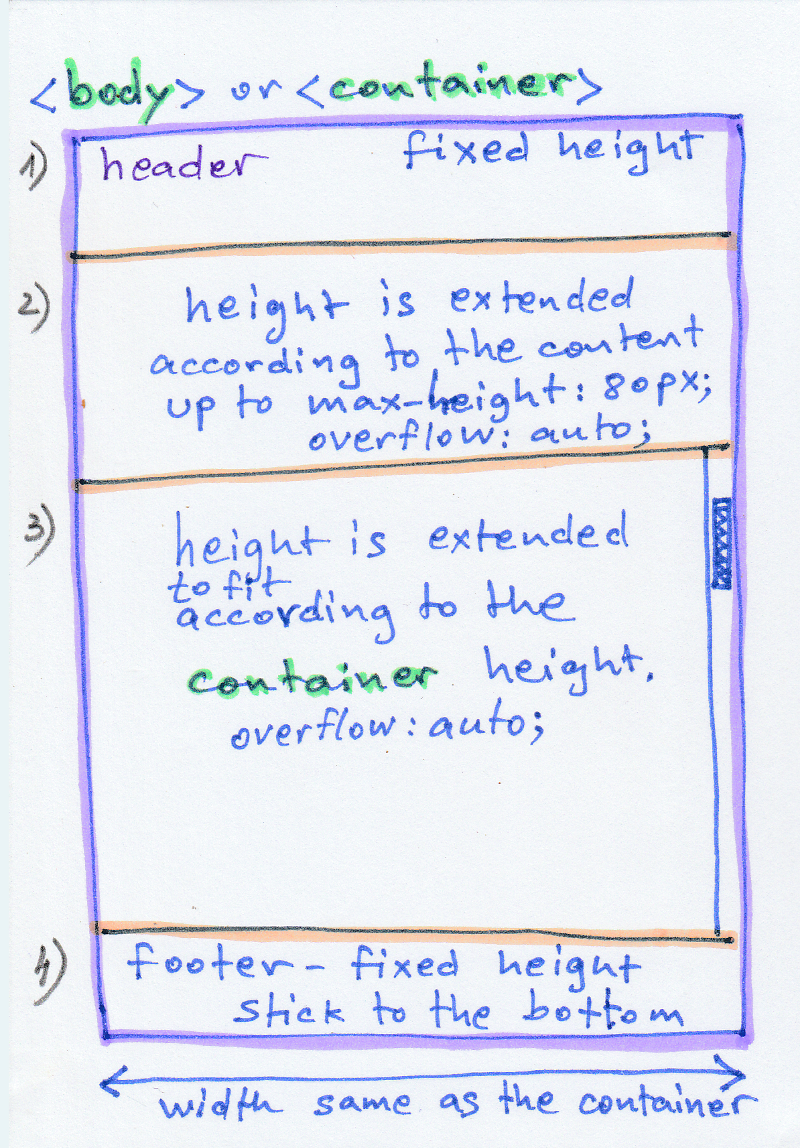 <body> or <container>
1) header fixed height
2) height is extended
according to the content
up to max-height: 80px;
overflow: auto;
3) height is extended
to fit
according to the
container height.
overflow: auto;
4) footer - fixed height
stick to the bottom
width same as the container